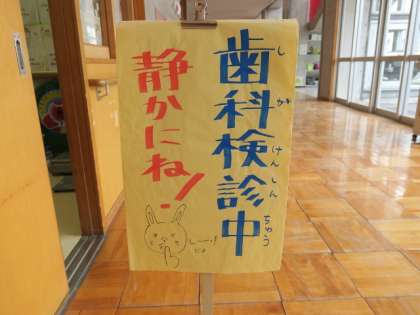 歯科検診中
しかけんしんちゅう
静かにね!
しーっ!
だよ